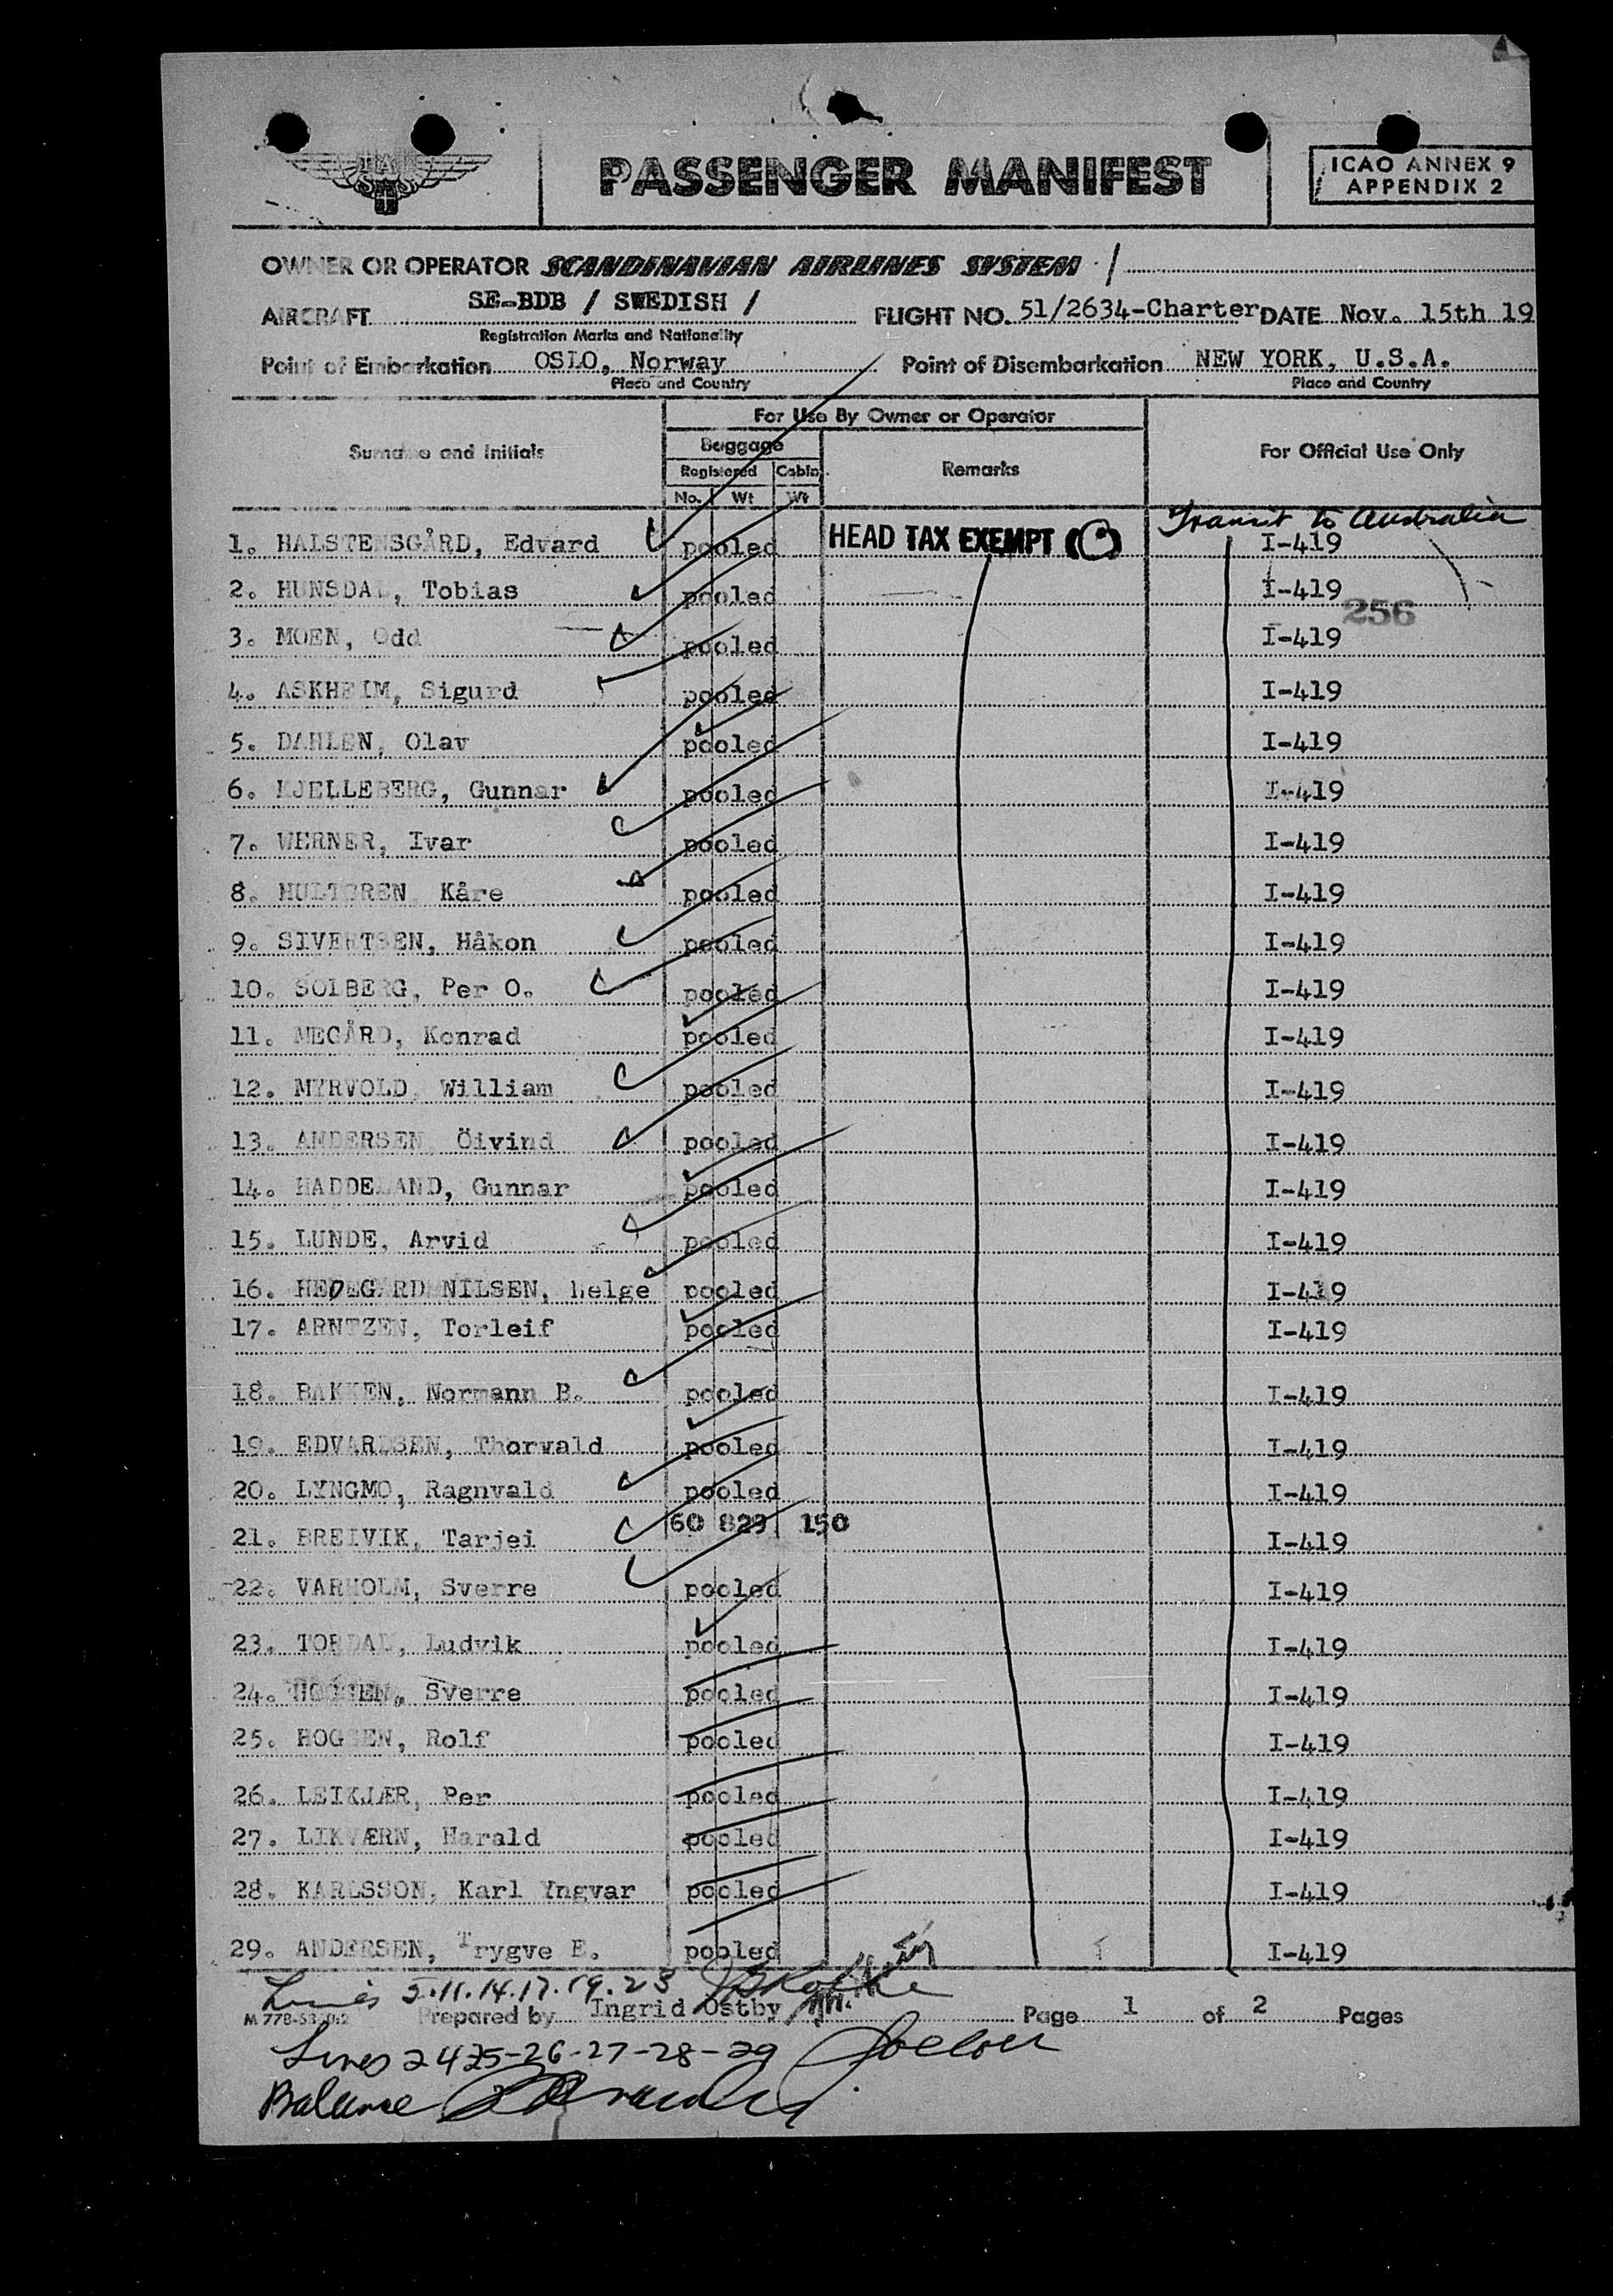 PASSENGER MANIFEST
ICAO ANNEX 9
APPENDIX 2
OWNER OR OPERATOR SCANDINAVIAN AIRLINES SYSTEM /
AIRCRAFT SE-BDB / SWEDISH / FLIGHT NO. 51/2634-Charter DATE Nov. 15th 19
Registration Marks and Nationality
Point of Embarkation OSLO, Norway Point of Disembarkation NEW YORK, U.S.A.
Place and Country Place and Country
For Use By Owner or Operator
Surname and Initials Baggage Remarks For Official Use Only
Registered Cabin
No. Wt Wt
Transit to Australia
1. HALSTENSGÅRD, Edvard pooled HEAD TAX EXEMPT I-419
2. HUNSDAL, Tobias pooled I-419
256
3. MOEN, Odd pooled I-419
4. ASKHEIM, Sigurd pooled I-419
5. DAHLEN, Olav pooled I-419
6. KJELLEBERG, Gunnar pooled I-419
7. WERNER, Ivar pooled I-419
8. HULTGREN, Kåre pooled I-419
9. SIVERTSEN, Håkon pooled I-419
10. SOLBERG, Per O. pooled I-419
11. MEGÅRD, Konrad pooled I-419
12. MYRVOLD, William pooled I-419
13. ANDERSEN, Öivind pooled I-419
14. HADDELAND, Gunnar pooled I-419
15. LUNDE, Arvid pooled I-419
16. NILSEN, Helge pooled I-419
17. ARNTZEN, Torleif pooled I-419
18. BAKKEN, Normann B. pooled I-419
19. EDVARDSEN, Thorvald pooled I-419
20. LYNGMO, Ragnvald pooled I-419
21. BREIVIK, Tarjei 60 829 150 I-419
22. VARHOLM, Sverre pooled I-419
23. Ludvik pooled I-419
24. Sverre pooled I-419
25. Rolf pooled I-419
26. LEIKJÆR, Per pooled I-419
27. LIKVÆRN, Harald pooled I-419
28. KARLSSON, Karl Yngvar pooled I-419
29. ANDERSEN, Trygve E. pooled I-419
Lines 5.11.14.17.19.23
Prepared by Ingrid Ostby Page 1 of 2 Pages
Lines 24 25-26-27-28-29
Balance